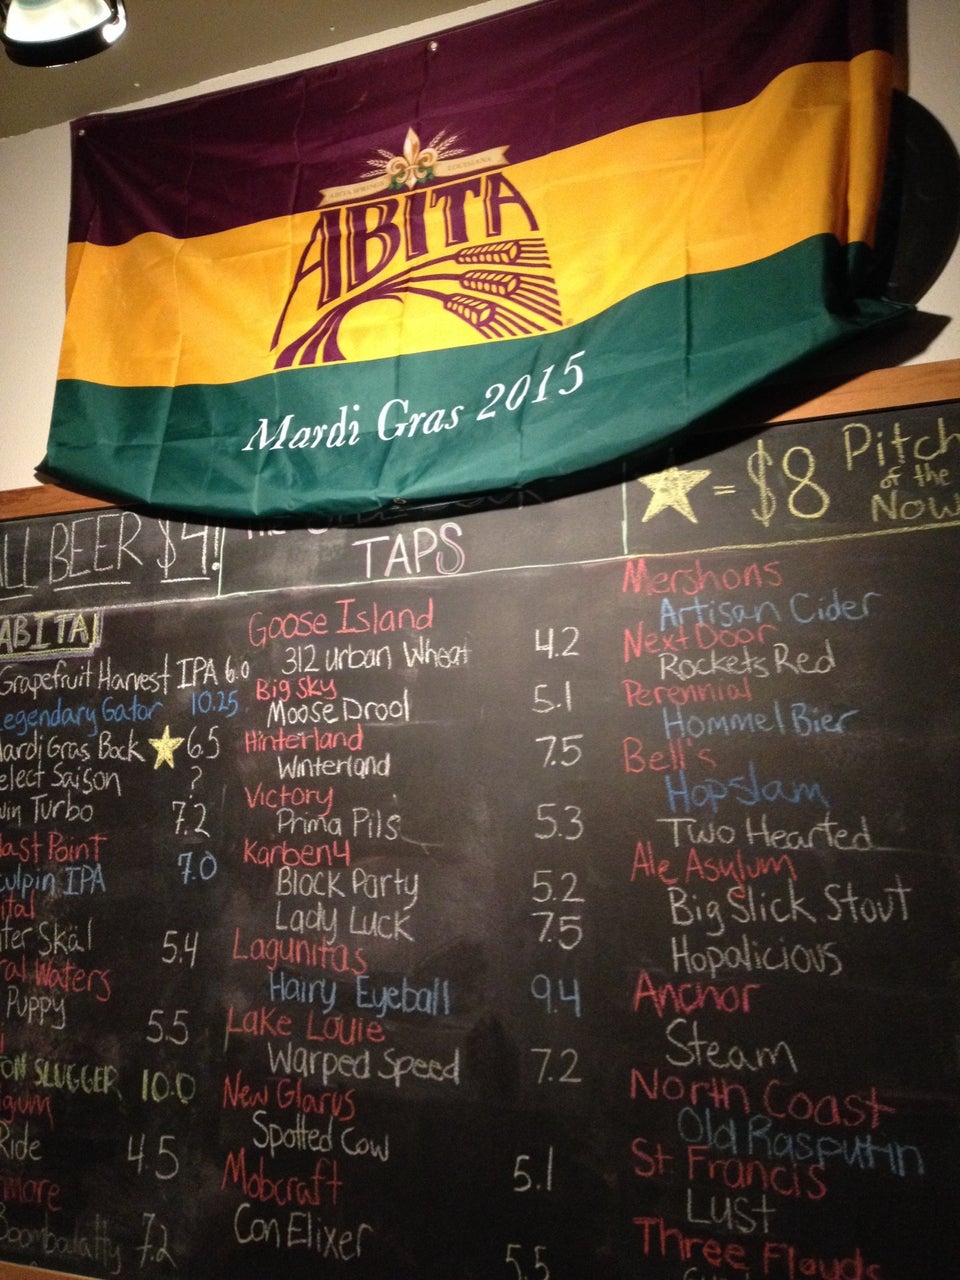 ABITA SPRINGS LOUISIANA
ABITA
Mardi Gras 2015
LL BEER $4!
TAPS
= $8 Pitch
of the
Now
ABITA
Grapefruit Harvest IPA 6.0
egendary Gator 10.25
ardi Gras Bock 6.5
elect Saison ?
win Turbo 7.2
last Point
culpin IPA 7.0
ital
ter Skäl 5.4
ral Waters
Puppy 5.5
ON SLUGGER 10.0
igum
Ride 4.5
nmore
Boombalatty 7.2
Goose Island
312 Urban Wheat 4.2
Big Sky
Moose Drool 5.1
Hinterland
Winterland 7.5
Victory
Prima Pils 5.3
Karben4
Block Party 5.2
Lady Luck 7.5
Lagunitas
Hairy Eyeball 9.4
Lake Louie
Warped Speed 7.2
New Glarus
Spotted Cow 5.1
Mobcraft
Con Elixer 5.5
Mershons
Artisan Cider
Next Door
Rockets Red
Perennial
Hommel Bier
Bell's
Hopslam
Two Hearted
Ale Asylum
Big Slick Stout
Hopalicious
Anchor
Steam
North Coast
Old Rasputin
St Francis
Lust
Three Floyds